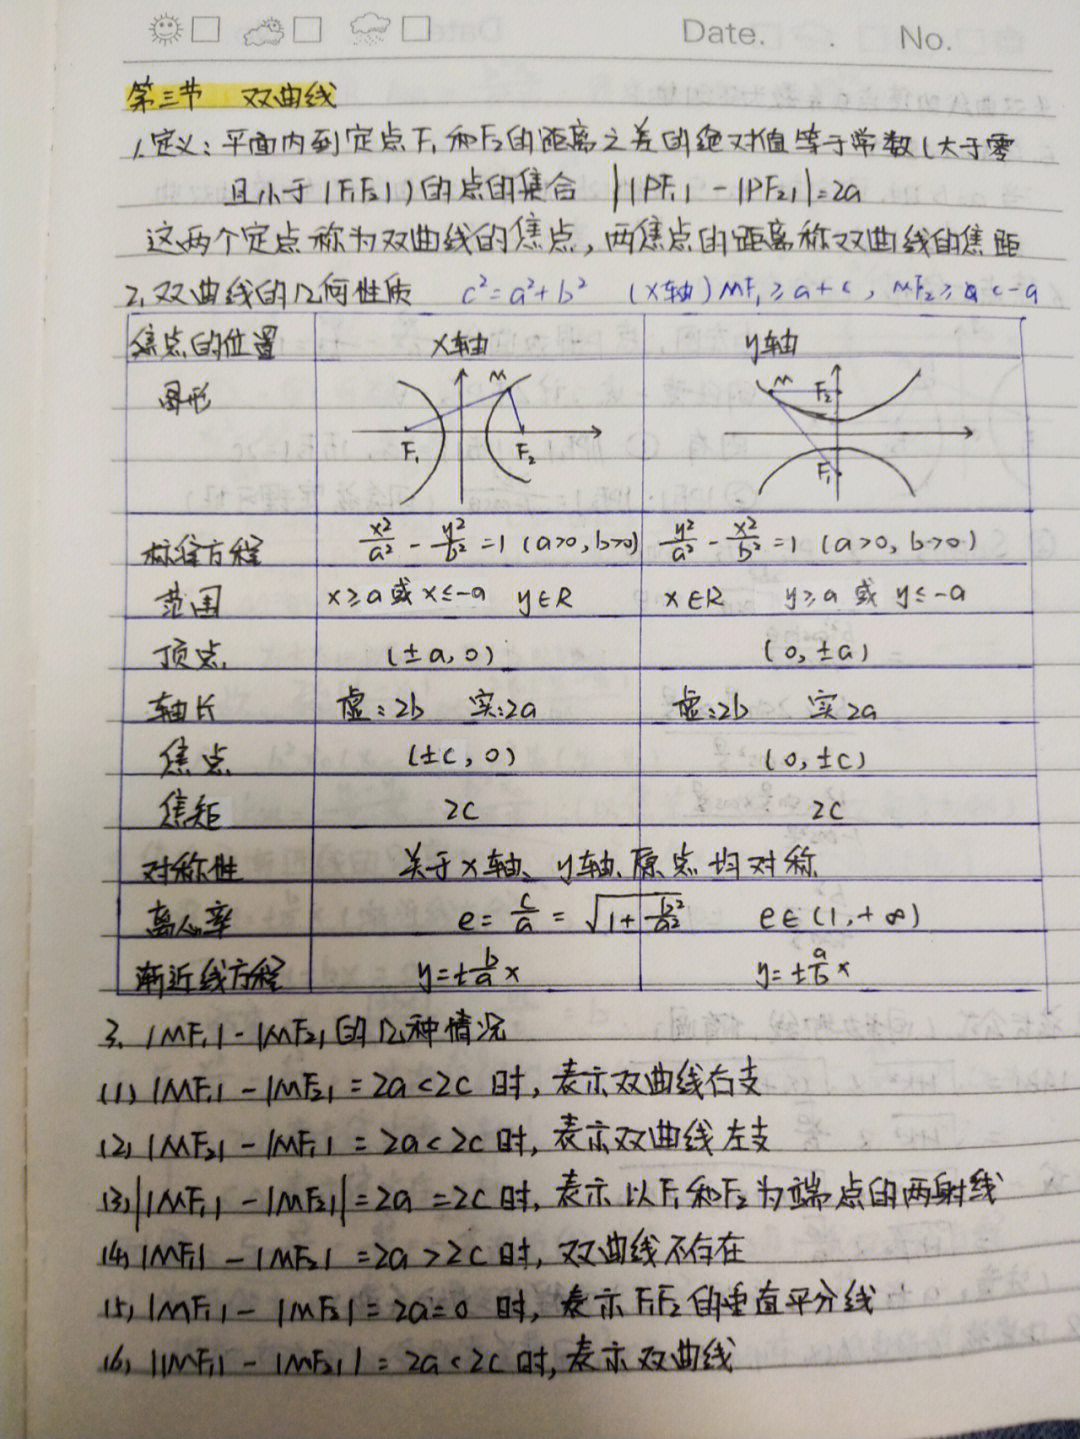 Date. . No.
第三节 双曲线
1.定义：平面内到定点F₁和F₂的距离之差的绝对值等于常数(大于零
且小于|F₁F₂|)的点的集合 ||PF₁|-|PF₂||=2a
这两个定点称为双曲线的焦点，两焦点的距离称双曲线的焦距
2.双曲线的几何性质 c²=a²+b² (x轴)MF₁≥a+c，MF₂≥c-a
焦点的位置 x轴 y轴
图形 M F₁ F₂ M F₂ F₁
标准方程 x²/a² - y²/b² =1 (a>0,b>0) y²/a² - x²/b² =1 (a>0,b>0)
范围 x≥a或x≤-a y∈R x∈R y≥a或y≤-a
顶点 (±a,0) (0,±a)
轴长 虚:2b 实:2a 虚:2b 实2a
焦点 (±c,0) (0,±c)
焦距 2c 2c
对称性 关于x轴、y轴、原点均对称
离心率 e= c/a = √(1+ b²/a²) e∈(1,+∞)
渐近线方程 y=± b/a x y=± a/b x
3. |MF₁|-|MF₂|的几种情况
(1) |MF₁|-|MF₂|=2a<2c时，表示双曲线右支
(2) |MF₂|-|MF₁|=2a<2c时，表示双曲线左支
(3) ||MF₁|-|MF₂||=2a=2c时，表示以F₁和F₂为端点的两射线
(4) |MF₁|-|MF₂|=2a>2c时，双曲线不存在
(5) |MF₁|-|MF₂|=2a=0时，表示F₁F₂的垂直平分线
(6) ||MF₁|-|MF₂||=2a<2c时，表示双曲线